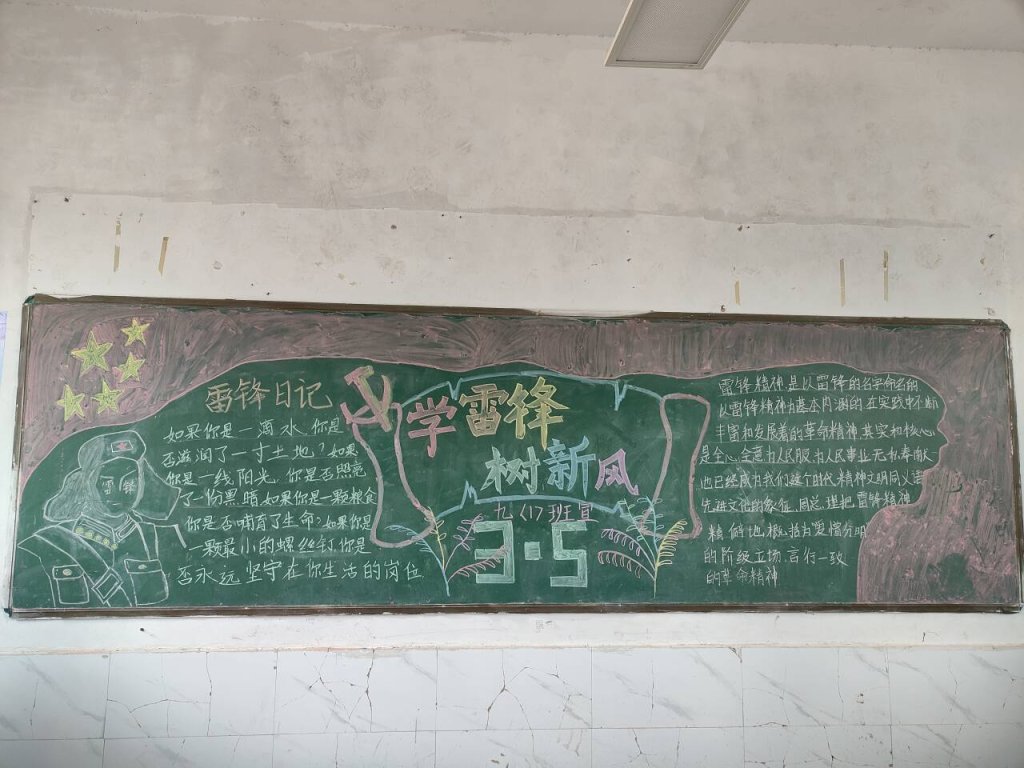 雷锋日记
如果你是一滴水,你是
否滋润了一寸土地?如果
你是一线阳光,你是否照亮
了一份黑暗如果你是一颗粮食
你是否哺育了生命?如果你是
一颗最小的螺丝钉你是
否永远坚守在你生活的岗位
雷锋
学雷锋
树新风
九(1)班宣
3·5
雷锋精神是以雷锋的名字命名的
以雷锋精神为基本内涵的在实践中不断
丰富和发展着的革命精神其实和核心
是全心全意为人民服为人民事业无私奉献
也已经成为我们这个时代精神文明同义语
先进文化的象征周总理把雷锋精神
精 地概括为爱憎分明
的阶级立场言行一致
的革命精神